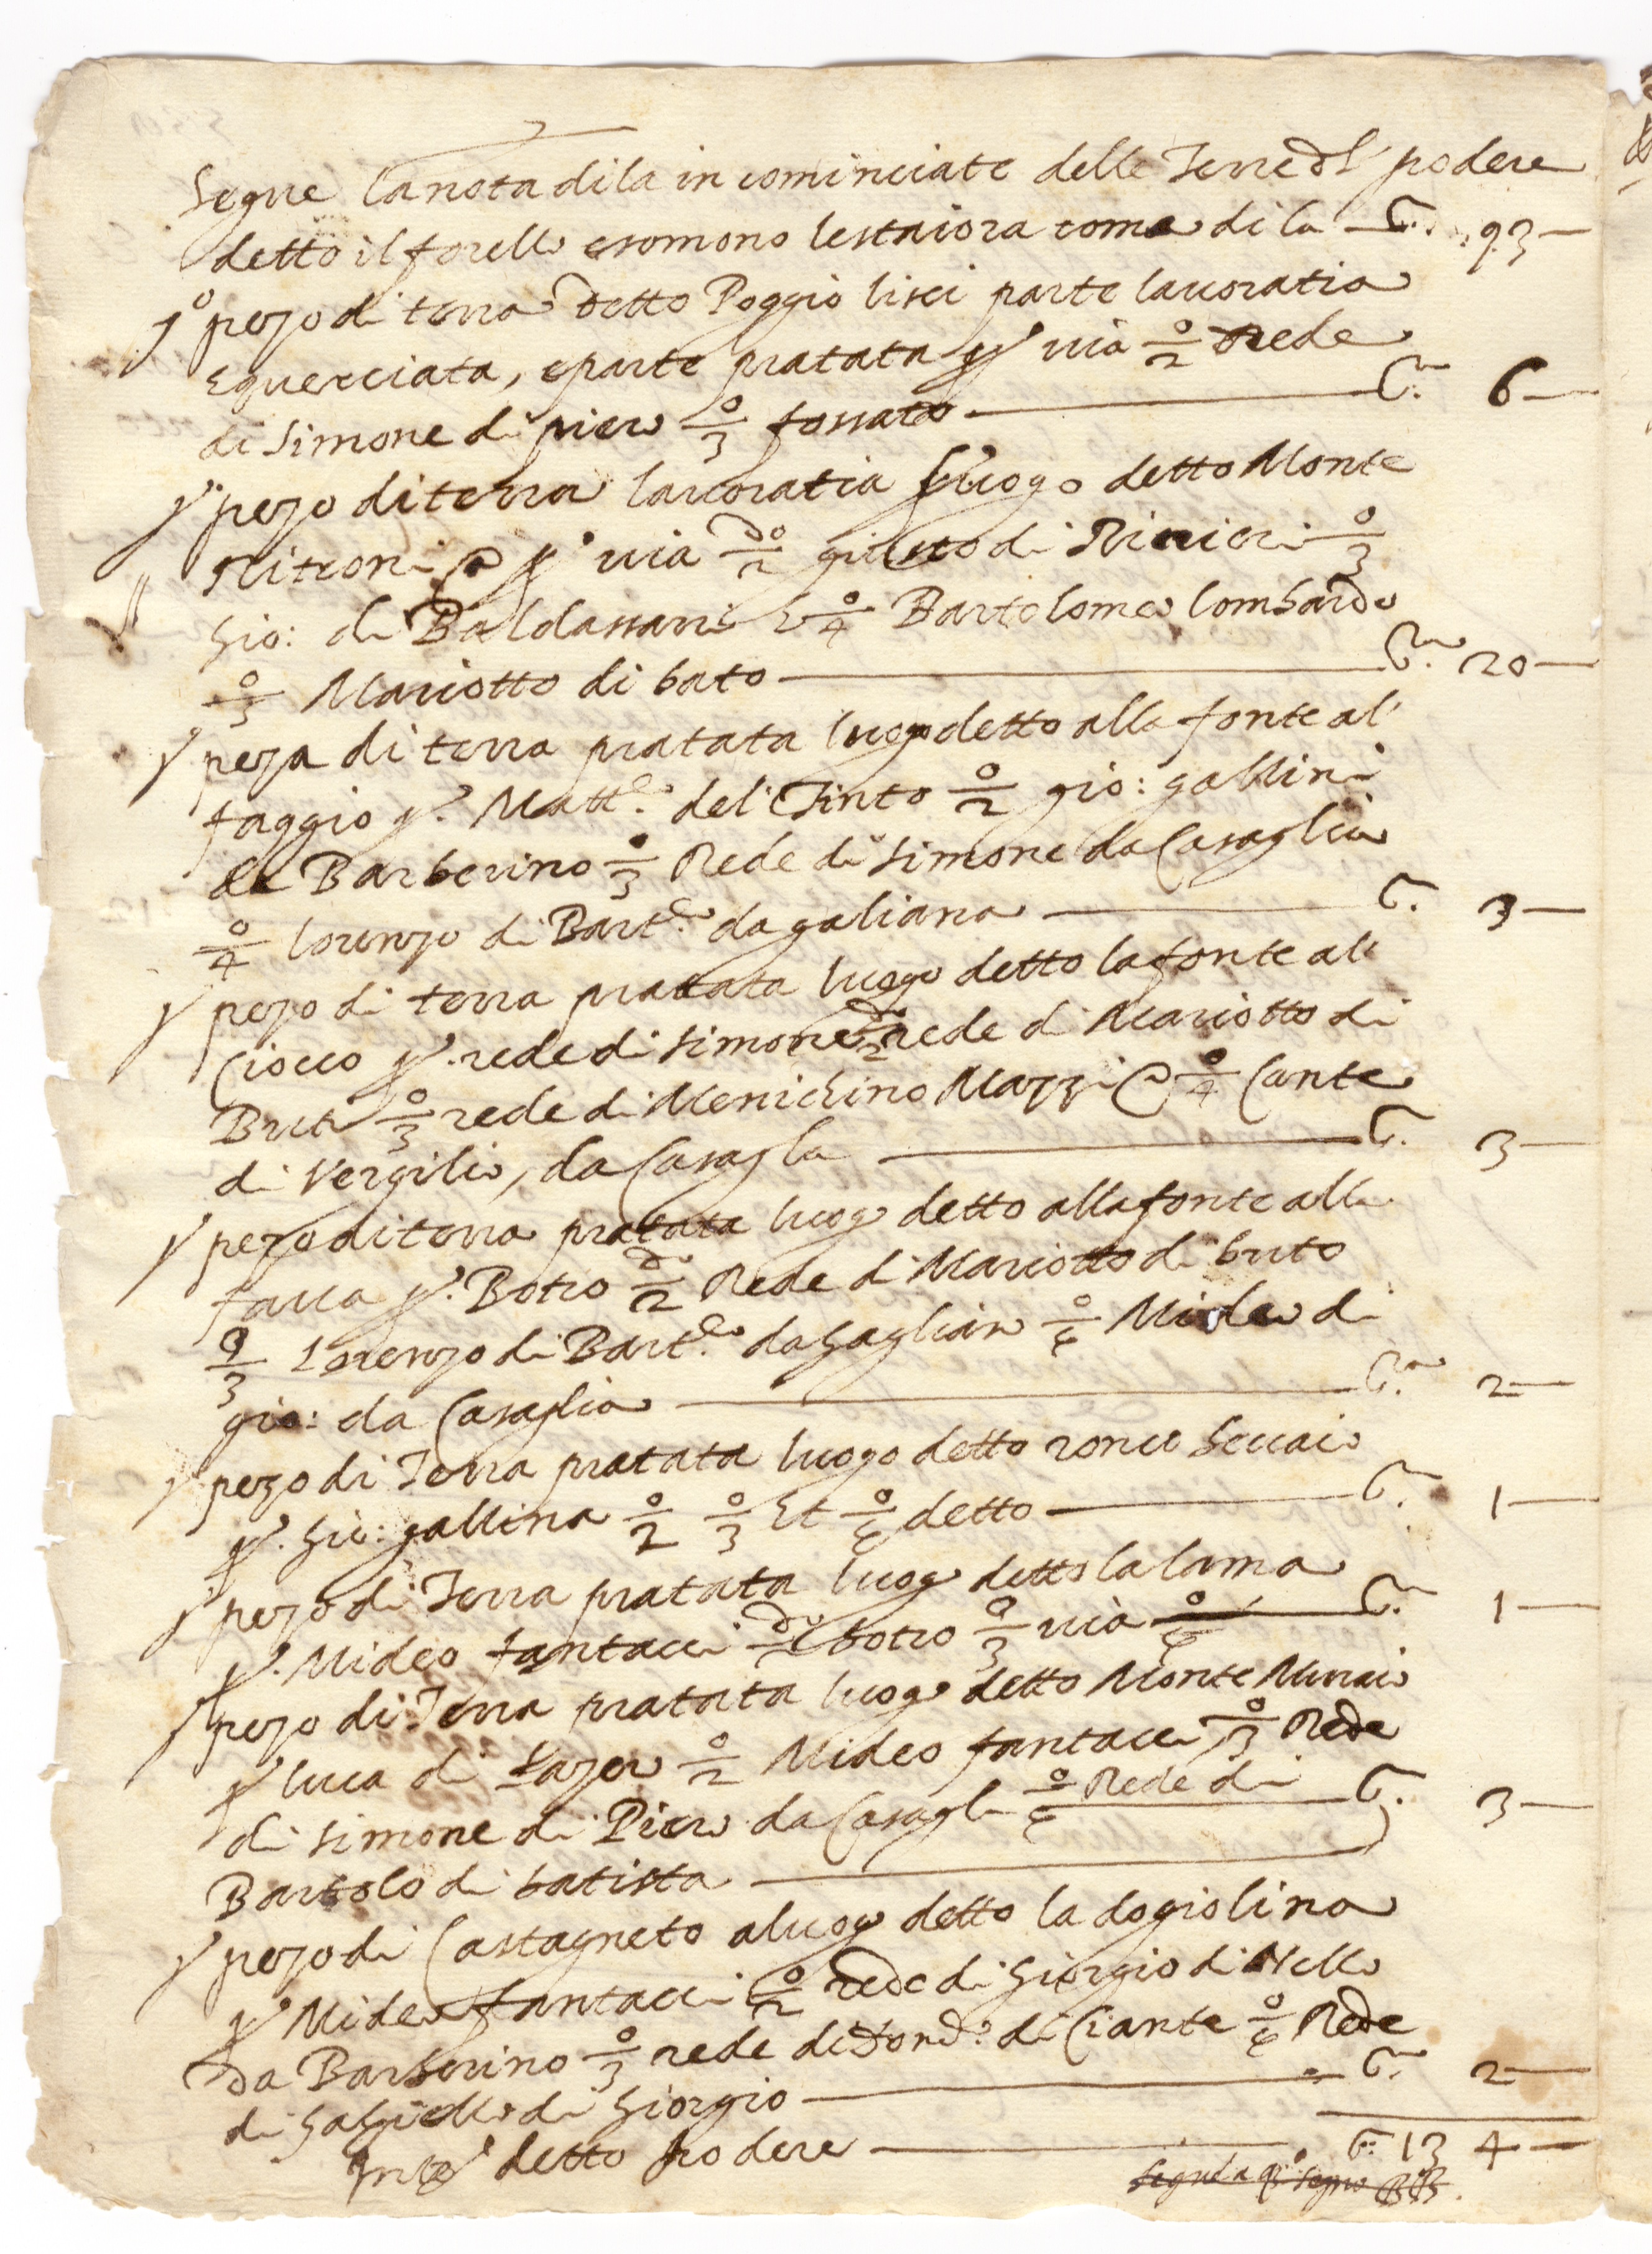 Segue la nota di la in cominciate delle Terre dl podere
detto il forello esomono lestaiora come di la — S. 93 —
jº pezo di terra detto Poggio lisci parte lavoratia
equerciata, e parte pratata pº via o/2 Rede
di Simone di piero o/3 fossato — S.ra 6 —
j pezo di terra lavoratia luogo detto Monte
Ritroni pº via do/2 giusto di Rinieri o/3
Gio: di Baldassarri E o/4 Bartolomeo lombardo
o/3 Mariotto di bato — S.ra 20 —
j peza di terra pratata luogo detto alla fonte al
faggio pº. Matt.eo del Tinto o/2 gio: gallini
da Barberino o/3 Rede di simone da Casaglia
o/4 lorenzo di Bart.eo da galiana — S. 3 —
j pezo di terra pratata luogo detto la fonte al
Ciocco pº. rede di simone do/2 rede di Mariotto di
Buto o/3 rede di Menichino Mazzi o/4 Cante
di Vergilio, da Casagla — S. 3 —
j pezo di terra pratata luogo detto alla fonte alla
pº. Botro do/2 Rede di Mariotto di buto
o/3 Lorenzo di Bart.eo da Gagliano o/4 Mideo di
gio: da Casaglia — S.ra 2 —
j pezo di Terra pratata luogo detto ronco Seccaio
pº. Gio: gallina o/2 o/3 Et o/4 detto — S. 1 —
j pezo di Terra pratata luogo detto la lama
pº. Mideo fantacci do/2 botro o/3 via o/4 — S.ra 1 —
j pezo di Terra pratata luogo detto Monte Muraio
pº luca di Lazero o/2 Mideo fantacci o/3 Rede
di simone di Piero da Casagli o/4 Rede di — S. 3 —
Bartolo di batista —
j pezo di Castagneto a luogo detto la dogiolina
pº Mideo fantacci o/2 rede di Giorgio di Nello
da Barberino o/3 rede di di Ciante o/4 Rede
di Gabriello di Giorgio — S.ra 2 —
detto podere — S. 13 4 —
segue a qº segno BB.